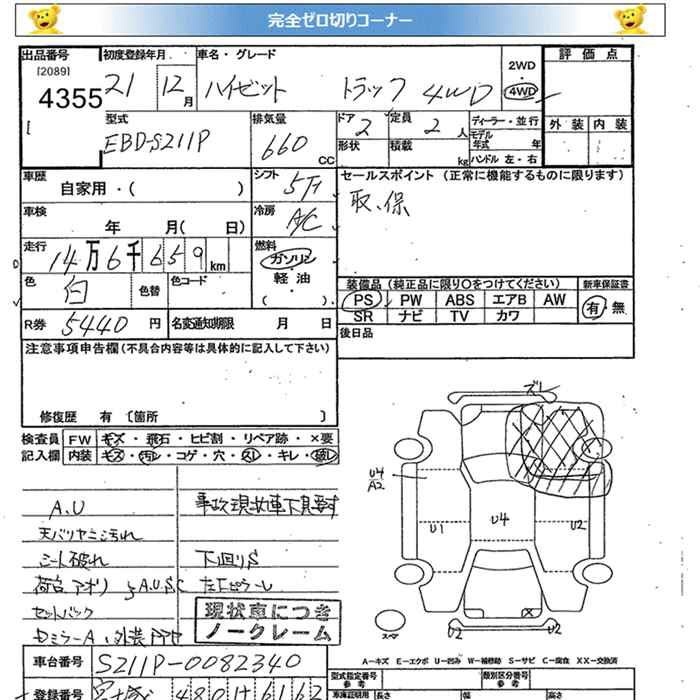 完全ゼロ切りコーナー
出品番号 初度登録年月 車名・グレード 2WD 評価点
[2089] 4355 21 12月 ハイゼット トラック 4WD 4WD
型式 排気量 ドア 定員 ディーラー・並行 外装 内装
EBD-S211P 660 CC 2 2人 モデル年式 年
形状 積載 kg ハンドル 左・右
車歴 シフト セールスポイント (正常に機能するものに限ります)
自家用・( ) 5F 取、保
車検 冷房
年 月( 日) A/C
走行 燃料
14万6千659km ガソリン
色 色替 色コード 軽・油
白 ( )
装備品 (純正品に限り○をつけてください) 新車保証書
PS PW ABS エアB AW 有・無
SR ナビ TV カワ
R券 5440円 名変通知期限 月 日 後日品
注意事項申告欄 (不具合内容等は具体的に記入して下さい)
修復歴 有 〔箇所 〕
検査員 FW キズ・飛石・ヒビ割・リペア跡・×要
記入欄 内装 キズ・汚レ・コゲ・穴・スレ・キレ・破レ
ズレ
U4
A2
U1 U4 U2
A.U 事故現状車下見要す
天バリヤニ汚れ
シート破れ 下回りS
荷台アオリ A.U.S.C
セットバック
現状車につき
ノークレーム
スペア U2 × U2
車台番号 S211P-0082340
A－キズ E－エクボ U－凹み W－補修跡 S－サビ C－腐食 XX－交換済
登録番号 宮城 480 6162
型式指定番号 参考 類別区分番号 参考
車庫証明用 長さ 幅 高さ